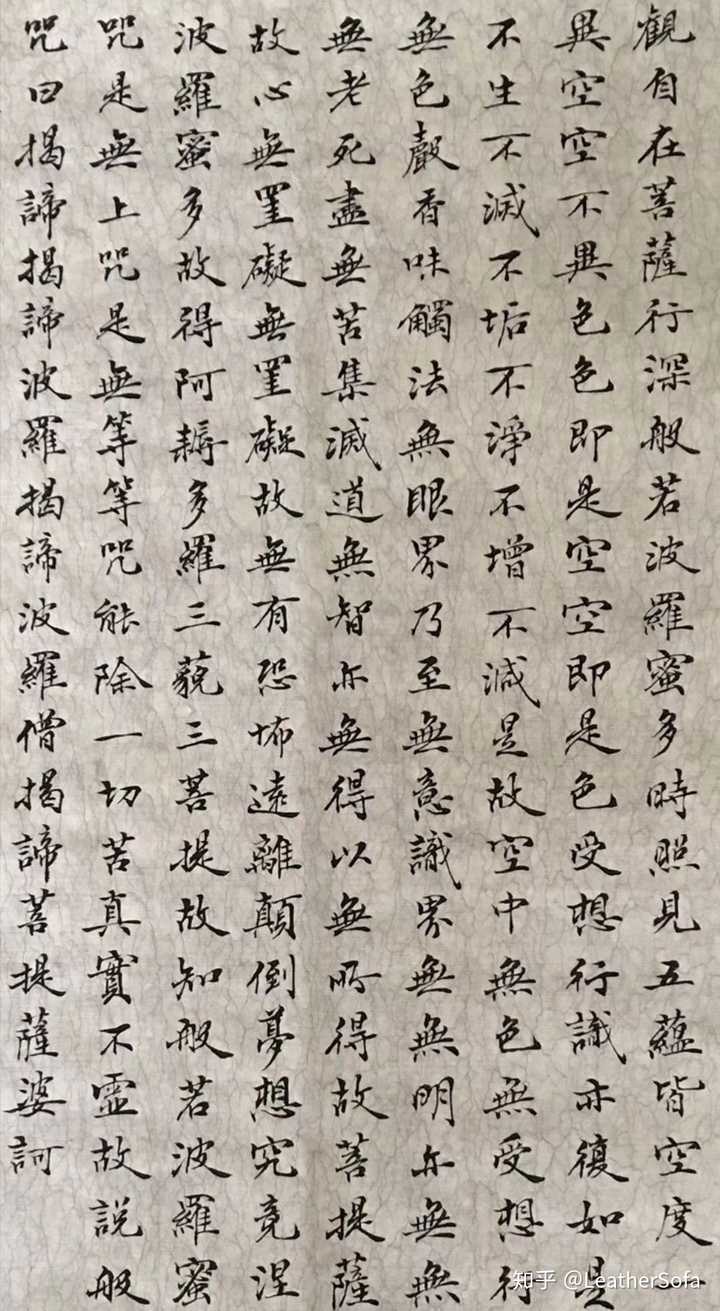 觀自在菩薩行深般若波羅蜜多時照見五蘊皆空度一
異空空不異色色即是空空即是色受想行識亦復如是
不生不滅不垢不淨不增不減是故空中無色無受想行
無色聲香味觸法無眼界乃至無意識界無無明亦無無
無老死盡無苦集滅道無智亦無得以無所得故菩提薩
故心無罣礙無罣礙故無有恐怖遠離顛倒夢想究竟涅
波羅蜜多故得阿耨多羅三藐三菩提故知般若波羅蜜
咒是無上咒是無等等咒能除一切苦真實不虛故說般
咒曰揭諦揭諦波羅揭諦波羅僧揭諦菩提薩婆訶
知乎 @LeatherSofa